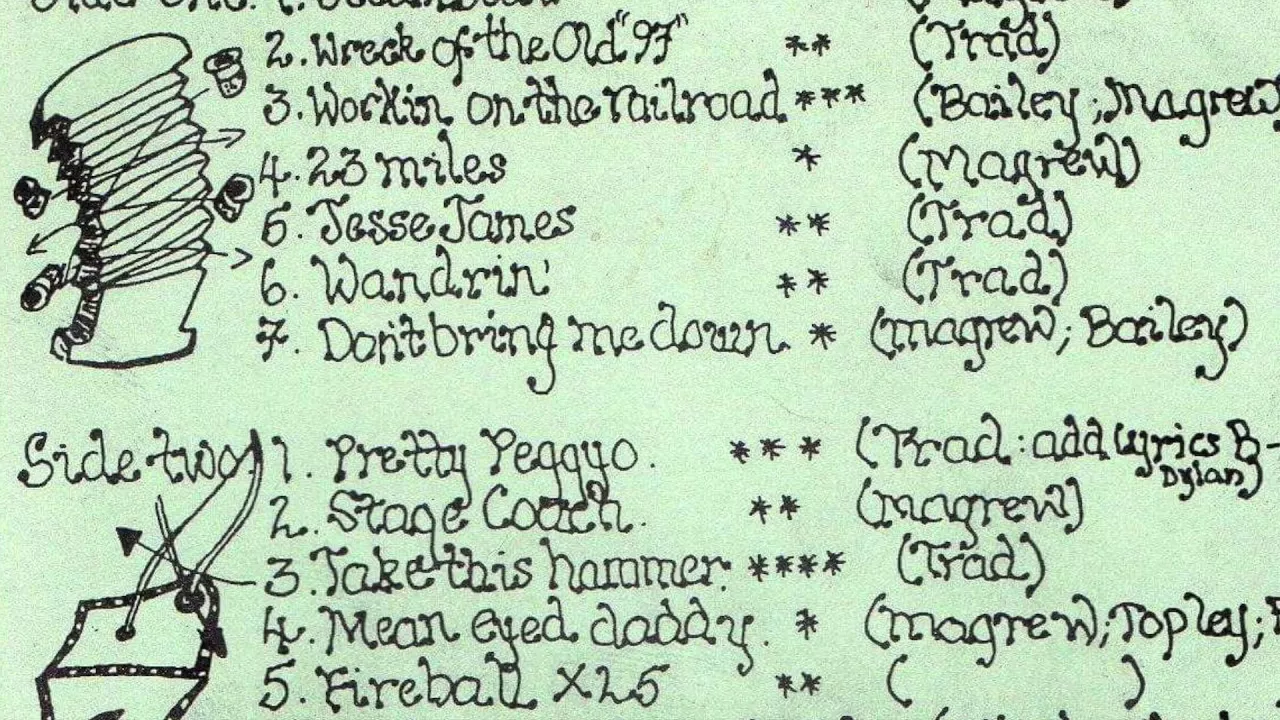 2. Wreck of the Old "97" ** (Trad)
3. Workin on the railroad *** (Bailey; Magrew
4. 23 miles * (Magrew)
5. Jesse James ** (Trad)
6. Wandrin' ** (Trad)
7. Don't bring me down * (magrew; Bailey)
Side two 1. Pretty Peggyo. *** (Trad: add lyrics B-
Dylan)
2. Stage Coach. ** (magrew)
3. Take this hammer. **** (Trad)
4. Mean eyed daddy. * (magrew; Topley;
5. Fireball X25 ** ( )